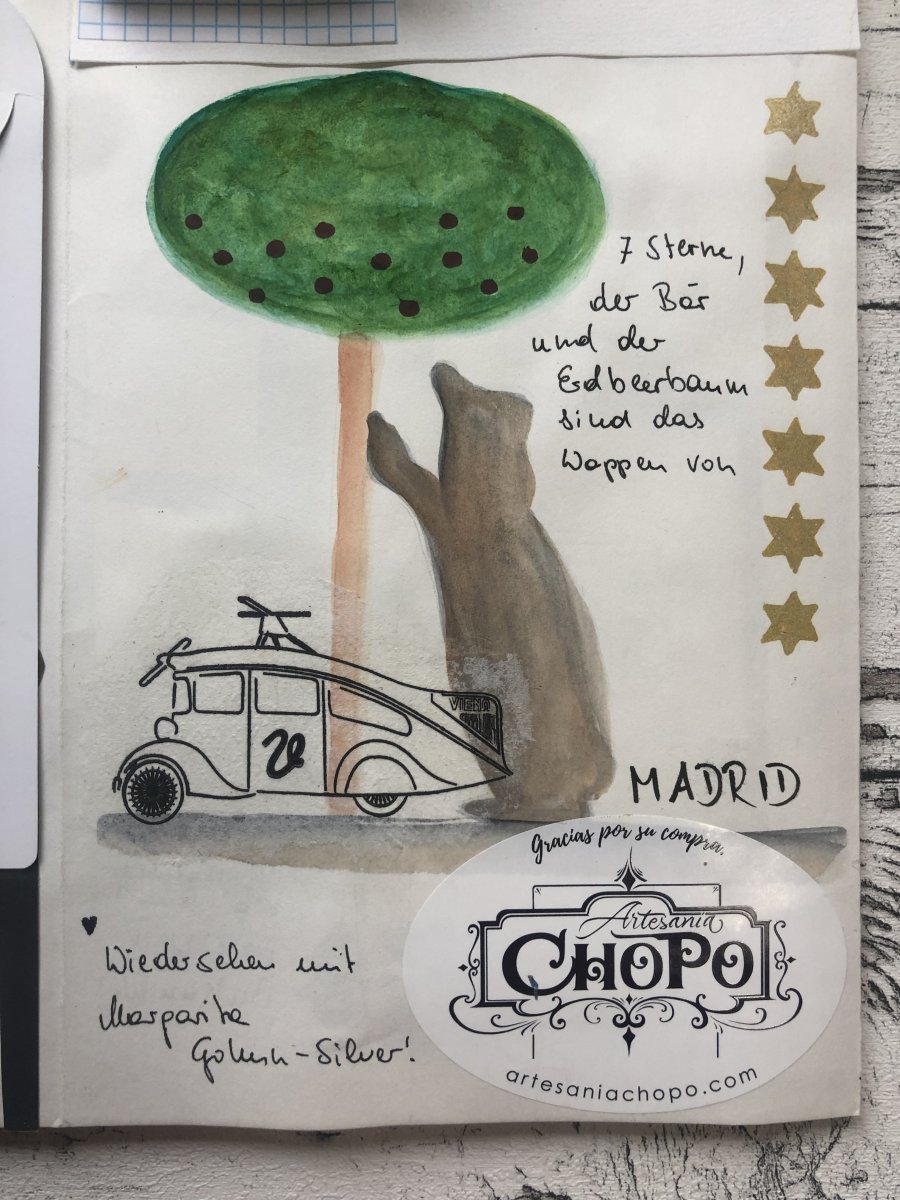 7 Sterne,
der Bär
und der
Erdbeerbaum
sind das
Wappen von
VIENA
MADRID
Gracias por su compra.
Artesanía
CHOPO
artesaniachopo.com
Wiedersehen mit
Margarita
-Silver!